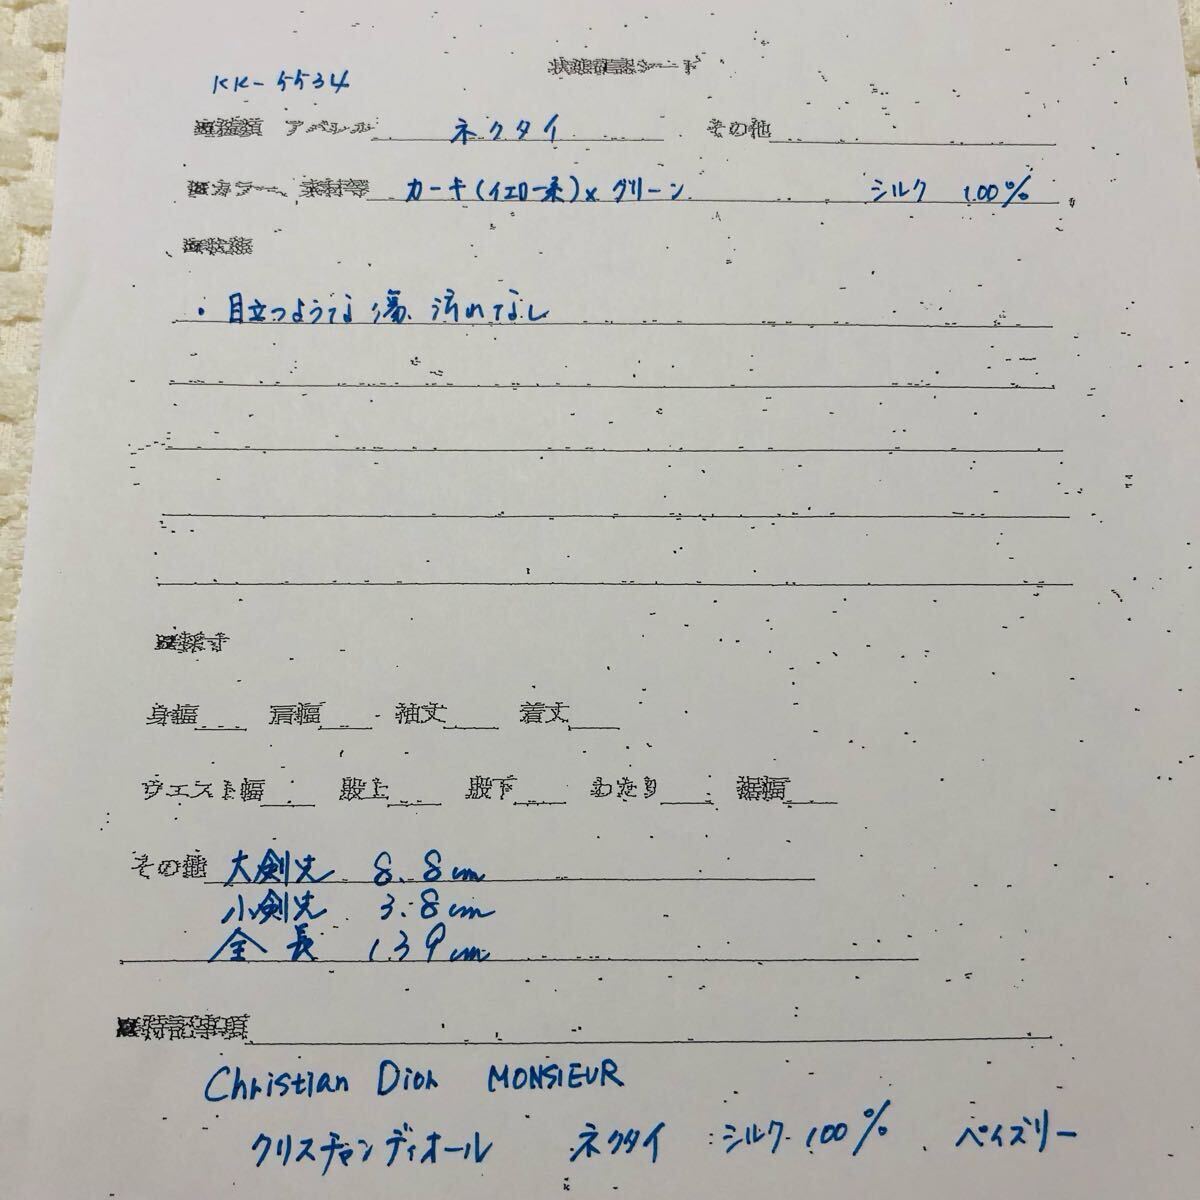 状態確認シート
KK-5534
■種類 アパレル ネクタイ その他
■カラー、素材等 カーキ(イエロー系)×グリーン シルク 100%
■状態
・目立つような傷、汚れなし
■採寸
身幅 肩幅 袖丈 着丈
ウエスト幅 股上 股下 わたり 裾幅
その他 大剣先 8.8cm
小剣先 3.8cm
全長 139cm
■特記事項
Christian Dior MONSIEUR
クリスチャンディオール ネクタイ シルク100% ペイズリー